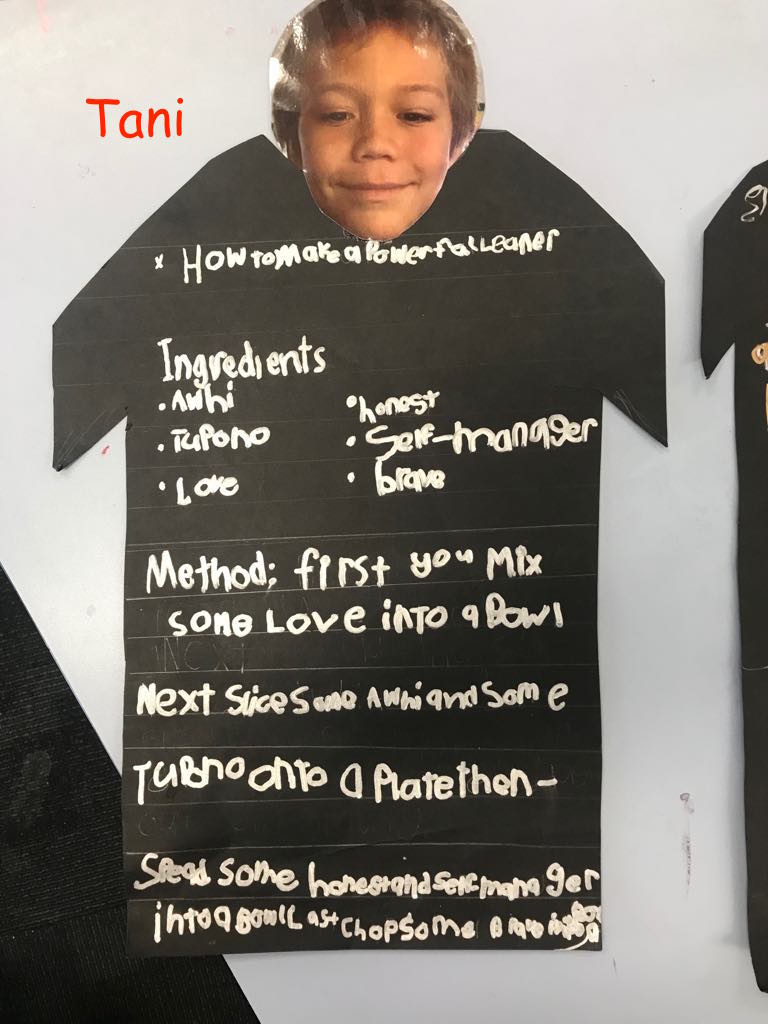 Tani
x How to make a Powerful Leaner
Ingredients
• Awhi
• honest
• Tupono
• Self-manager
• Love
• brave
Method: first you Mix
some Love into a Bowl
Next
Next Slice Some Awhi and Some
Tupono onto a Plate then -
Spead some honest and Self manager
into a Bowl Last Chop Some Brave